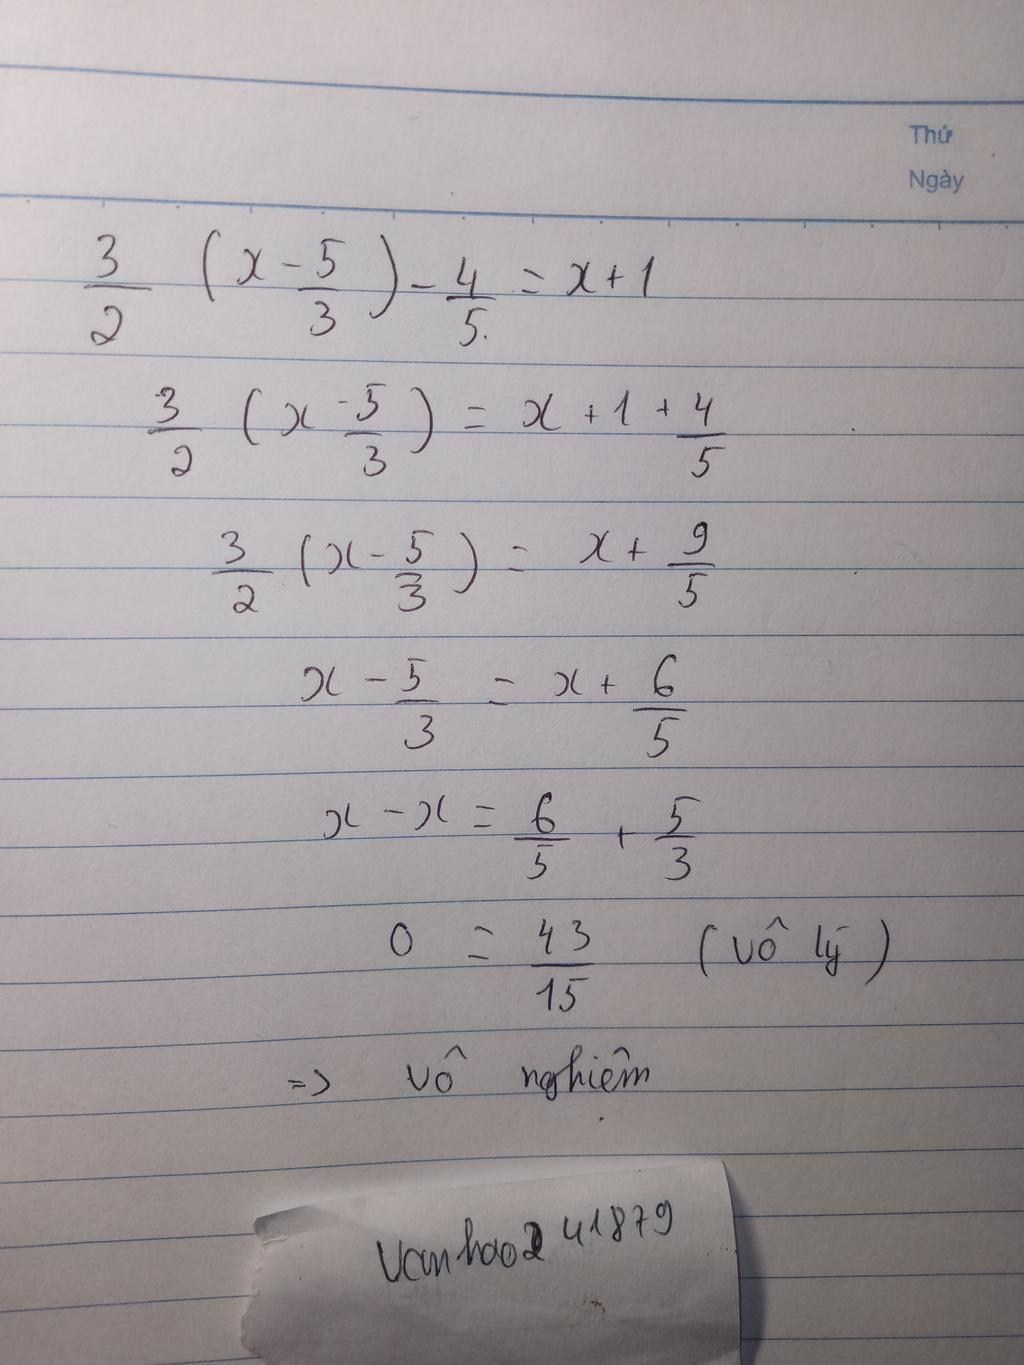 Thứ
Ngày
3/2 (x - 5/3) - 4/5. = x + 1
3/2 (x - 5/3) = x + 1 + 4/5
3/2 (x - 5/3) = x + 9/5
x - 5/3 = x + 6/5
x - x = 6/5 + 5/3
0 = 43/15 (vô lý)
=> vô nghiêm
Vanhao241879